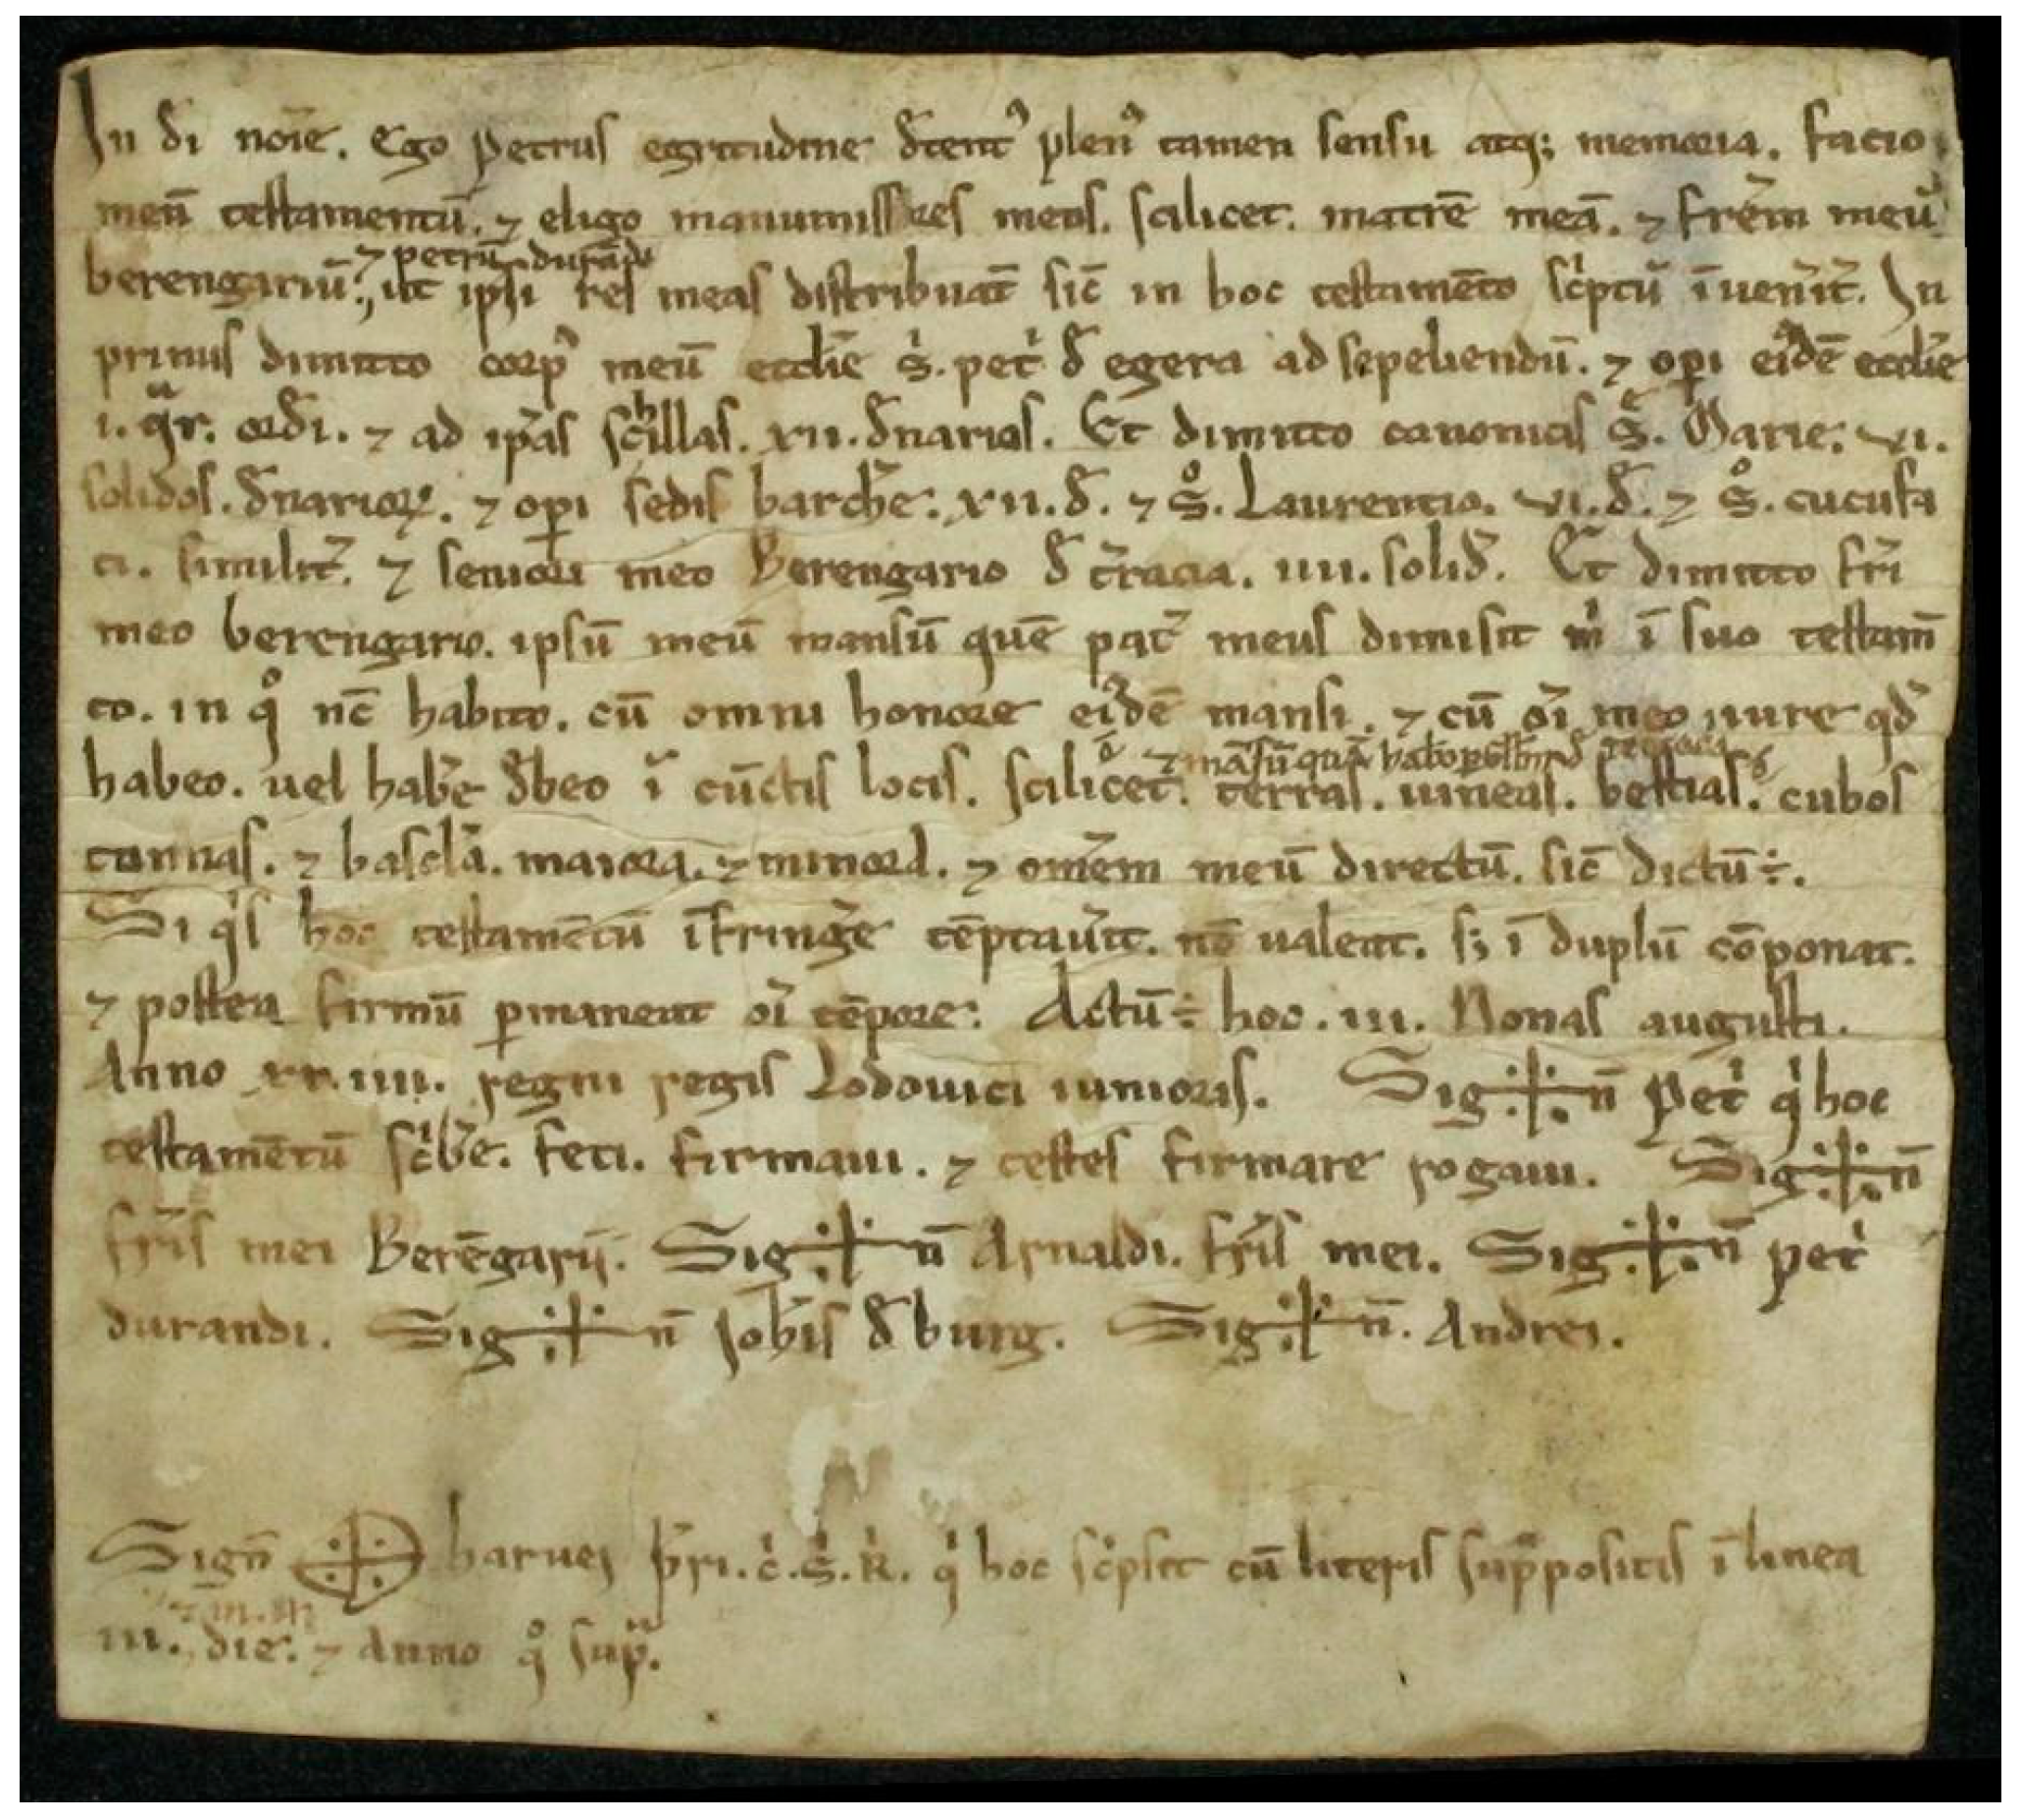 In di noie. Ego petrus egritudine dtent' plen' tamen sensu atq; memoria. facio
meu testamentu. ⁊ eligo manumissores meos. scilicet. matre mea. ⁊ frem meu
⁊ petru durandi
berengariu. ut ipsi res meas distribuat sic in hoc testamento scptu inuenit. In
primis dimitto corp' meu ecclie s. pet d egera ad sepeliendu. ⁊ opi eide ecclie
i. qr. ordi. ⁊ ad ipas schillas. xii. dnarios. Et dimitto canonicis s. Marie. vi.
solidos. dnarioꝝ. ⁊ opi sedis barche. xii. d. ⁊ s. Laurentio. vi. d. ⁊ s. cucufa
ti. similit. ⁊ seniori meo Berengario d tracia. iiii. solid. Et dimitto fri
meo berengario. ipsu meu mansu que pat meus dimisit m i suo testam
to. in q nc habito. cu omni honore eide mansi. ⁊ cu oi meo iure qd
⁊ masu qua habo p
habeo. uel habe dbeo i cuctis locis. scilicet. terras. uineas. bestias. cubos
tonnas. ⁊ bascla. maiora. ⁊ minora. ⁊ omem meu directu. sic dictu ÷.
Si qis hoc testametu ifringe teptauit. no ualeat. s; i duplu coponat.
⁊ postea firmu pmaneat oi tepore. Actu ÷ hoc. iii. Nonas augusti.
Anno xx. iiii. regni regis Lodouici iunioris. Sig+n Pet q hoc
testametu scbe. feci. firmaui. ⁊ testes firmare rogaui. Sig+n
fris mei Beregarij. Sig+n Arnaldi. fris mei. Sig+n pet
durandi. Sig+n Johis d burg. Sig+n. Andrei.
Sign + haruei pri. c. s. k. q hoc scpsit cu literis suppositis i linea
⁊
iii. die. ⁊ Anno q sup.